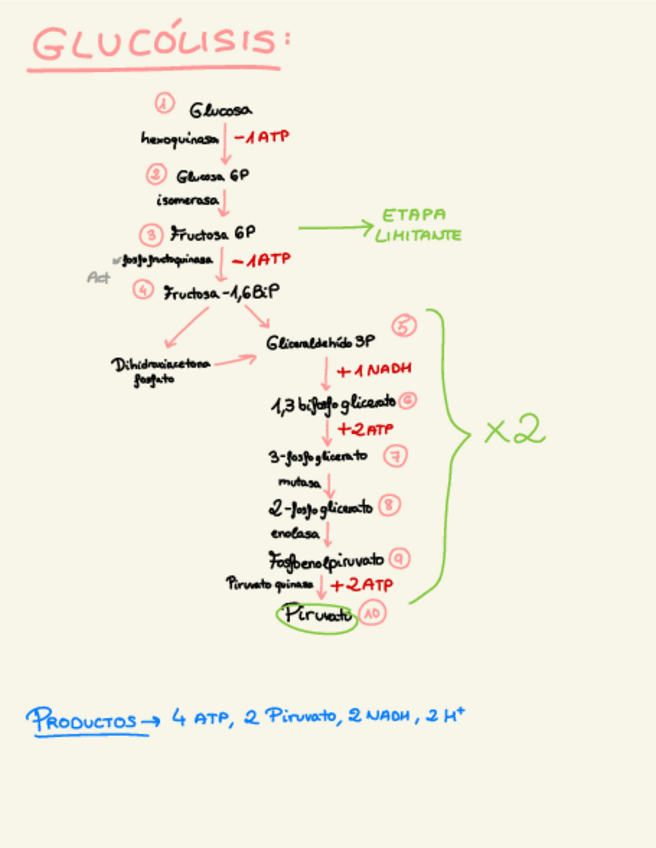 GLUCÓLISIS:
1 Glucosa
hexoquinasa -1 ATP
2 Glucosa 6P
isomerasa
3 Fructosa 6P
ETAPA
LIMITANTE
fosfofructoquinasa -1ATP
Act
4 Fructosa-1,6BiP
Gliceraldehído 3P 5
Dihidroxiacetona
fosfato
+1 NADH
1,3 bifosfoglicerato 6
+2 ATP
3-fosfoglicerato 7
mutasa
2-fosfoglicerato 8
enolasa
Fosfoenolpiruvato 9
Piruvato quinasa +2 ATP
Piruvato 10
x2
PRODUCTOS → 4 ATP, 2 Piruvato, 2 NADH, 2 H⁺